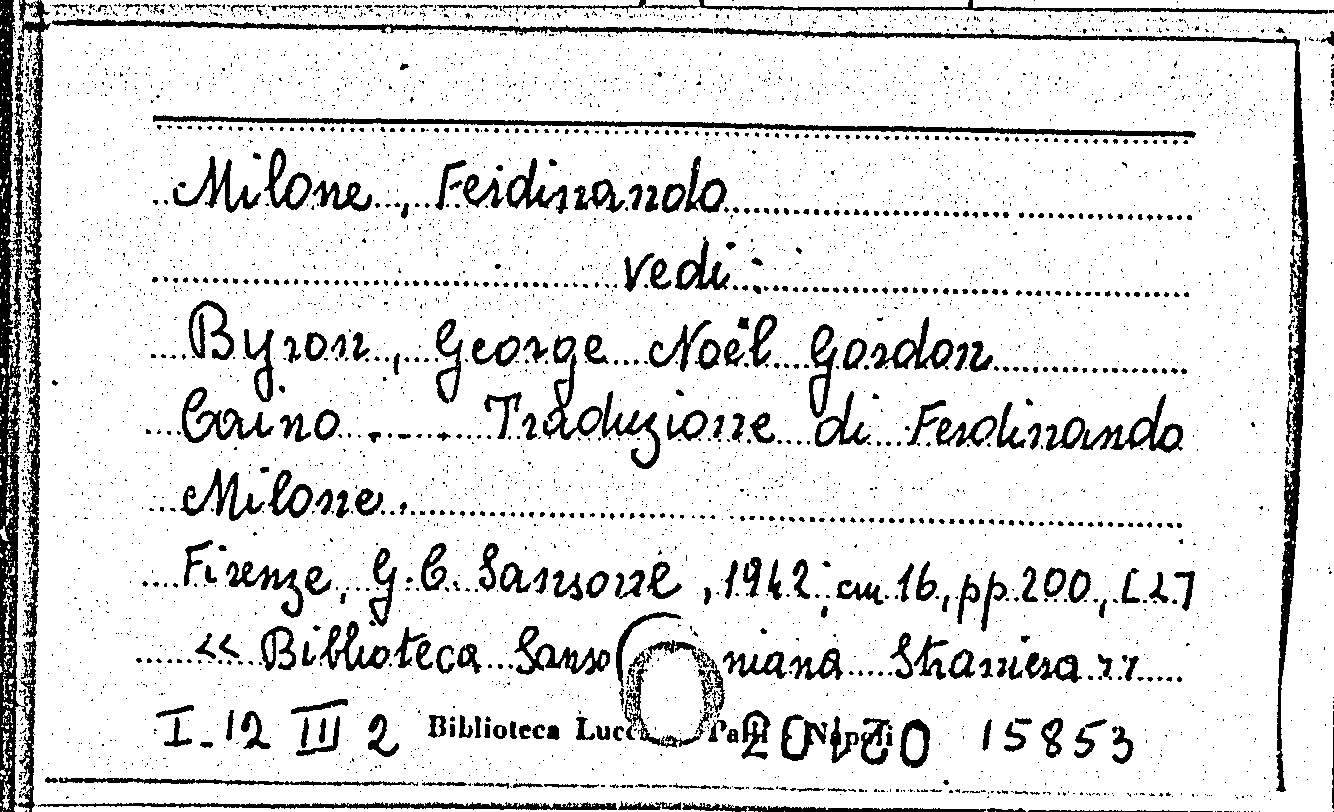 Milone, Ferdinando
vedi:
Byron, George Noël Gordon
Caino .... Traduzione di Ferdinando
Milone.
Firenze, G. C. Sansone, 1942; cm 16, pp. 200, [2]
« Biblioteca Sansoniana Straniera »
I-12 III 2 Biblioteca Lucchesi Palli Napoli 15853